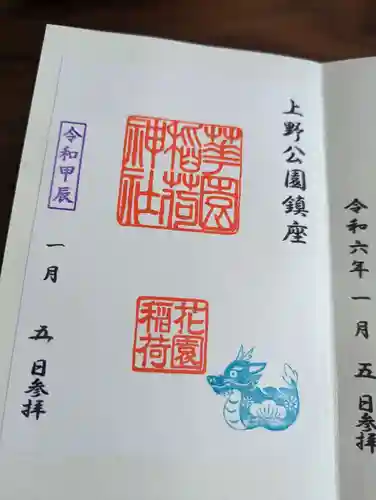 令和六年一月五日参拝
上野公園鎮座
華園稲荷神社
花園稲荷
令和甲辰
一月五日参拝